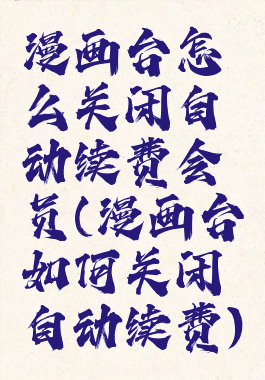 漫画台怎
么关闭自
动续费会
员(漫画台
如何关闭
自动续费)